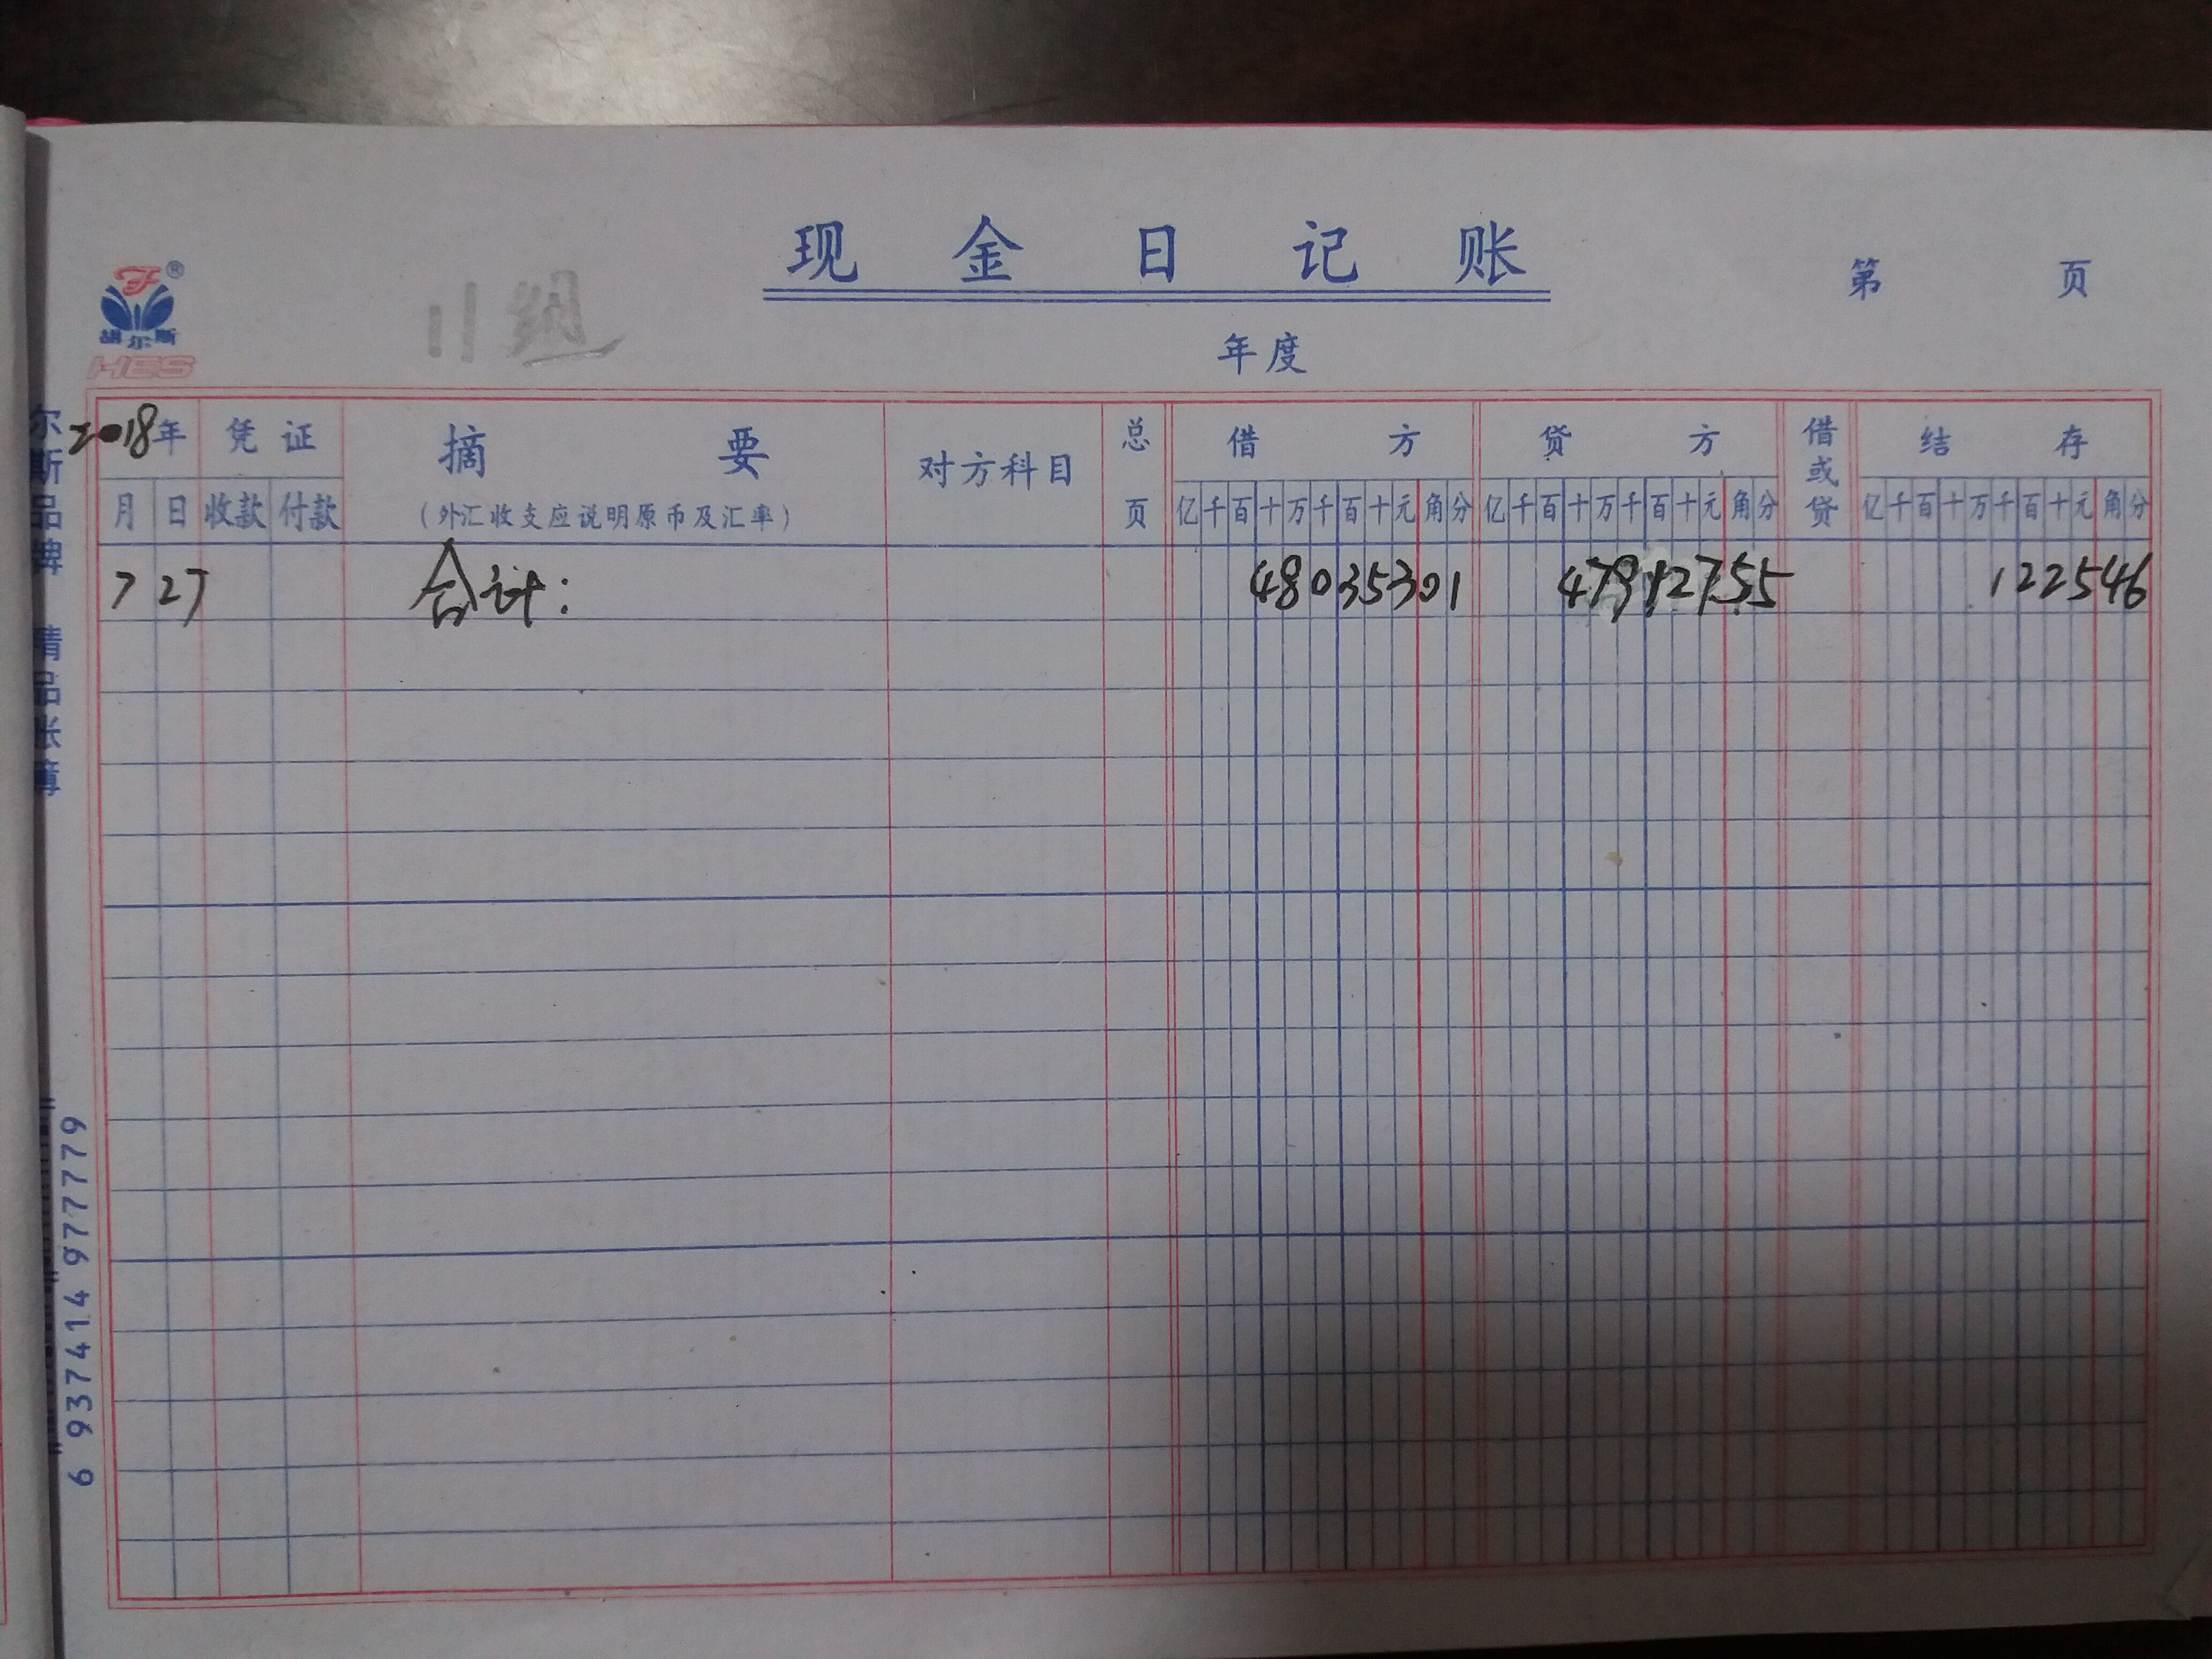 现金日记账
第 页
年度
11组
胡尔斯
HES
2018年 凭证 摘要 对方科目 总页 借方 贷方 借或贷 结存
月 日 收款 付款 (外汇收支应说明原币及汇率) 亿千百十万千百十元角分 亿千百十万千百十元角分 亿千百十万千百十元角分
7 27 合计: 48035301 47912755 122546
尔斯品牌 精品账簿
6 937414 977779